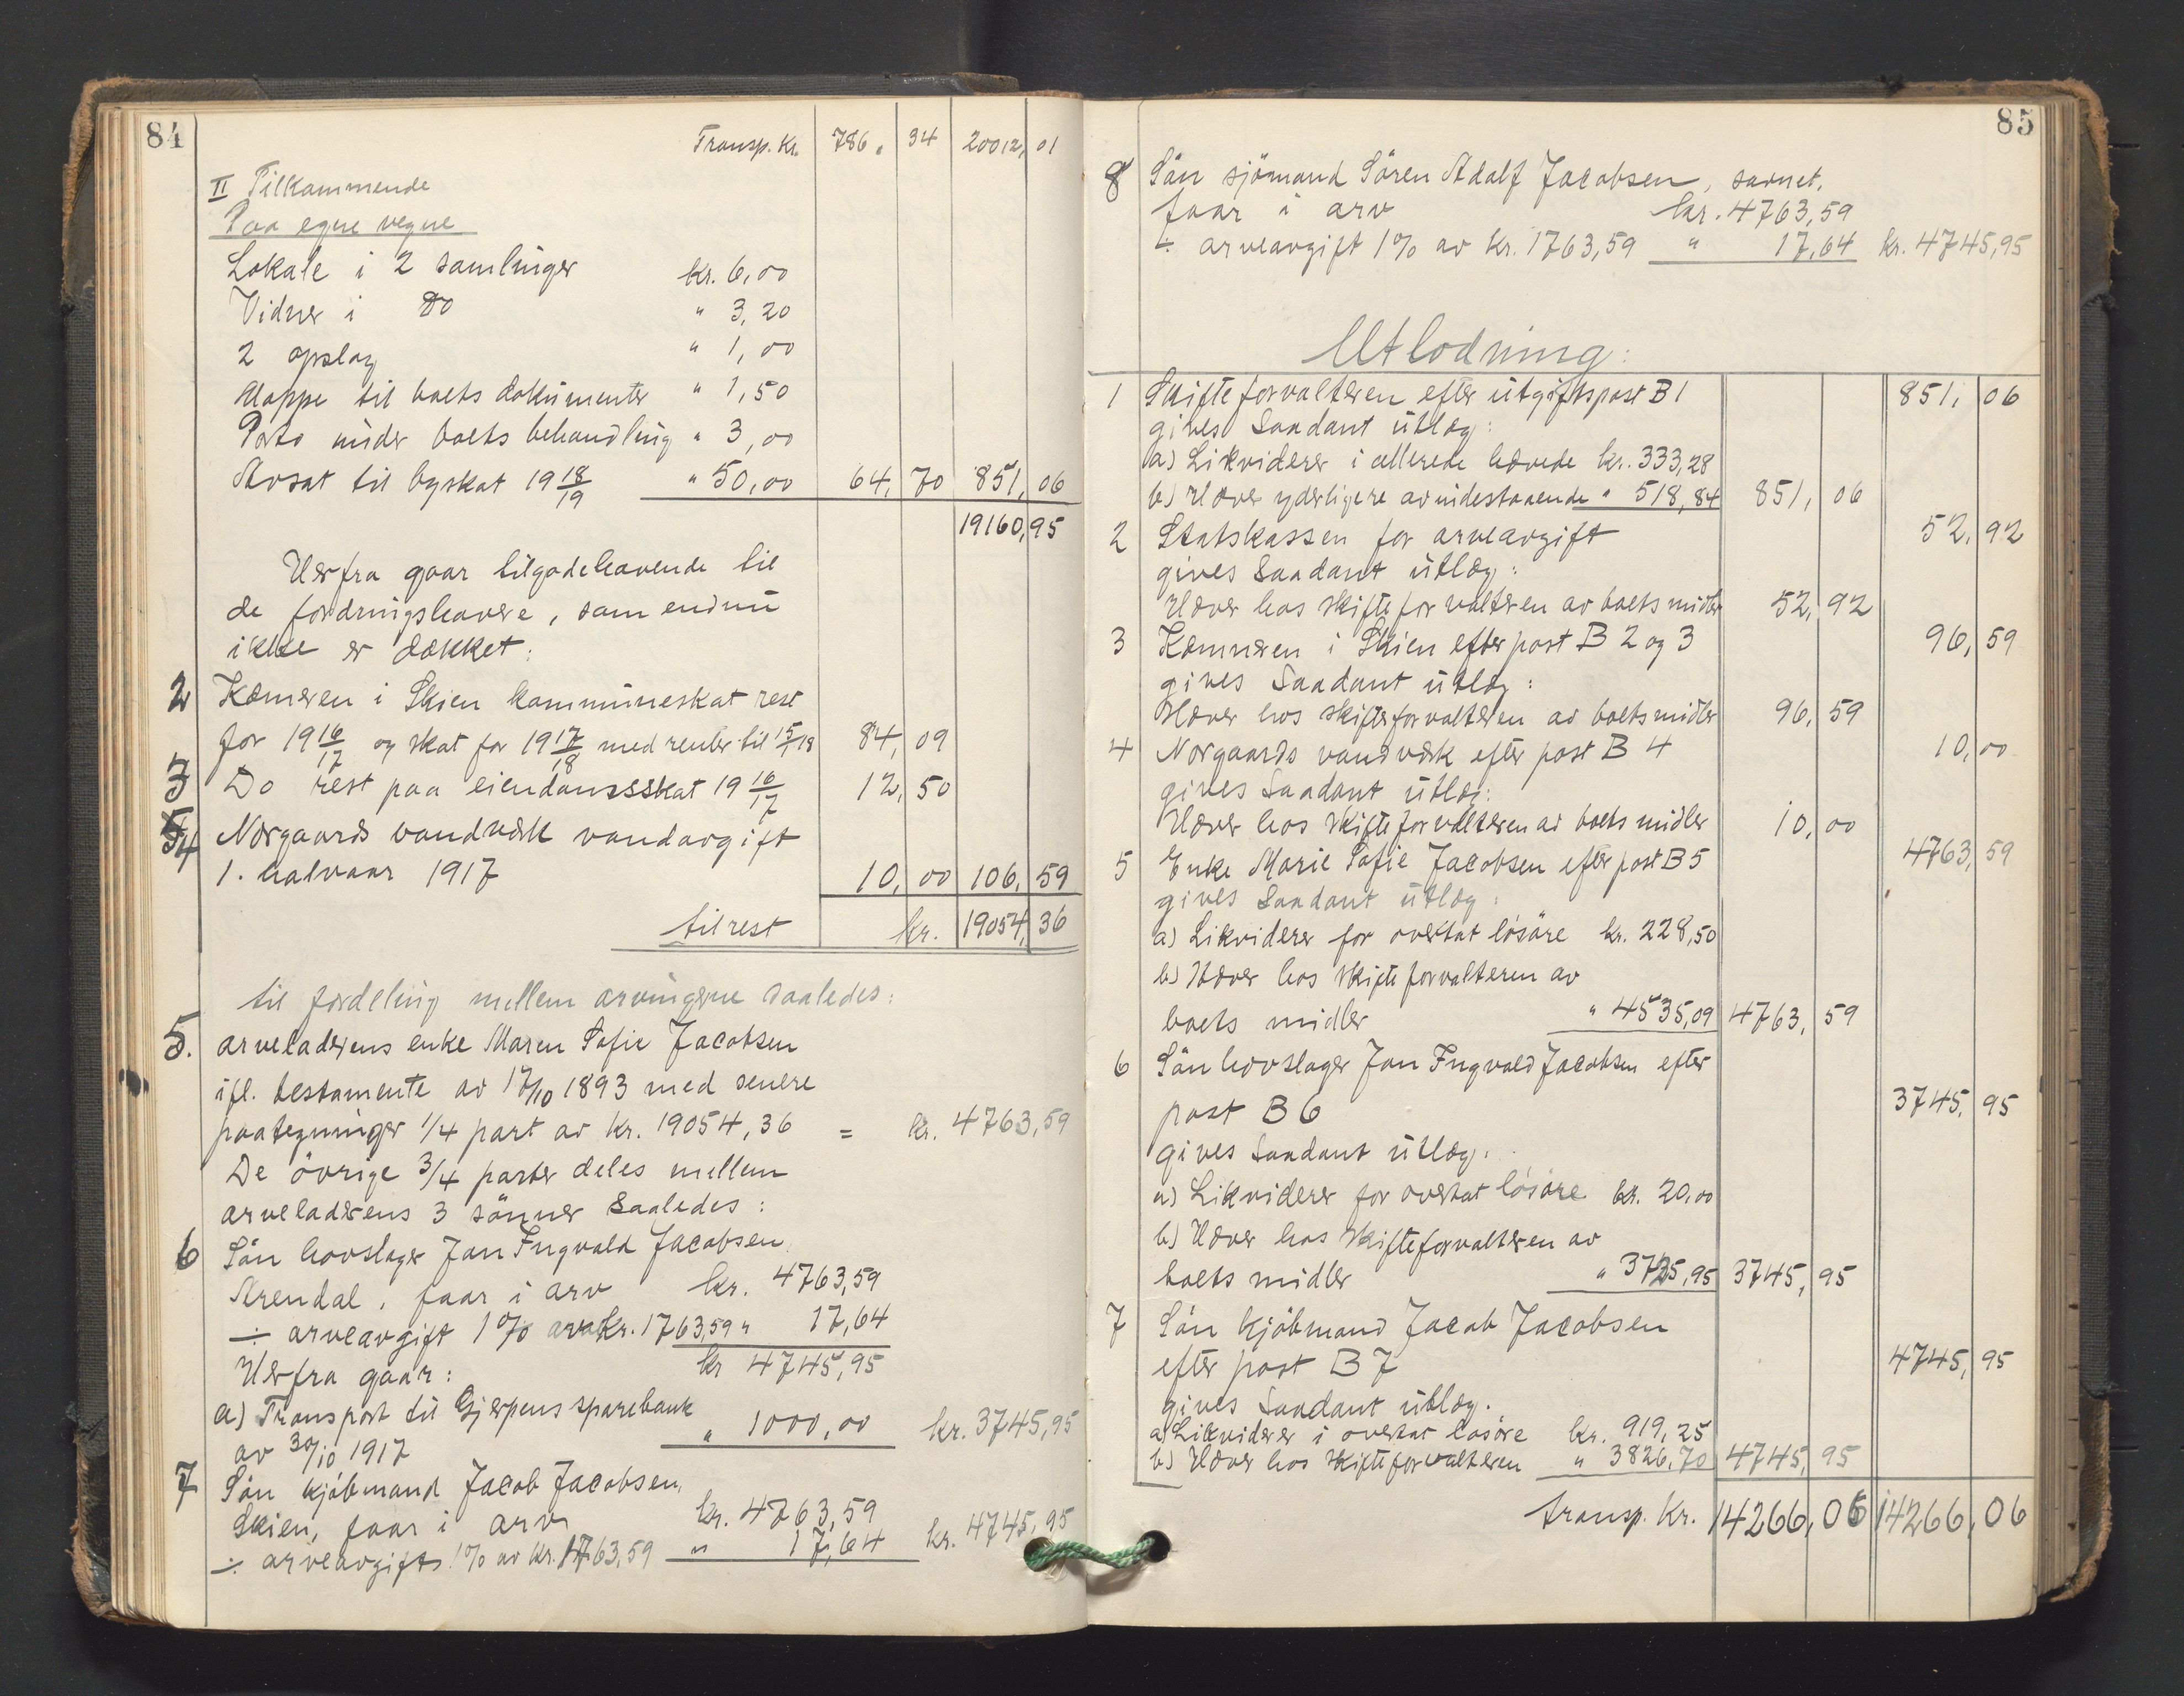 84
Transp. Kr. 786, 34 20012, 01
II Tilkommende
Paa egne vegne
Lokale i 2 samlinger kr. 6,00
Vidner i do " 3,20
2 opslag " 1,00
Mappe til boets dokumenter " 1,50
Porto under boets behandling " 3,00
Avsat til byskat 19 18/19 " 50,00 64, 70 851, 06
19160, 95
Herfra gaar tilgodehavende til
de fordringshavere, som endnu
ikke er dækket:
2 Kæmneren i Skien kommuneskat rest
for 19 16/17 og skat for 19 17/18 med renter til 15/1 18 84, 09
3 Do rest paa eiendomsskat 19 16/17 12, 50
4 Norgaards vandværk vandavgift
1. halvaar 1917 10, 00 106, 59
til rest kr. 19054, 36
til fordeling mellem arvingerne saaledes:
5. arveladerens enke Maren Sofie Jacobsen
ifl. testamente av 17/10 1893 med senere
paategninger 1/4 part av kr. 19054,36 = kr. 4763,59
De övrige 3/4 parter deles mellem
arveladerens 3 sönner saaledes:
6 Sön hovslager Jon Ingvald Jacobsen,
Arendal, faar i arv kr. 4763,59
÷ arveavgift 1% av kr. 1763,59 " 17,64
Herfra gaar: kr 4745,95
a) Transport til Gjerpens sparebank
av 30/10 1917 " 1000,00 kr. 3745,95
7 Sön kjöbmand Jacob Jacobsen,
Skien, faar i arv kr. 4763,59
÷ arveavgift 1% av kr. 1763,59 " 17,64 kr. 4745,95
85
8 Sön sjömand Sören Adolf Jacobsen, savnet,
faar i arv kr. 4763,59
÷ arveavgift 1% av kr. 1763,59 " 17,64 kr. 4745,95
Utlodning:
1 Skifteforvalteren efter utgiftspost B 1 851, 06
gives saadant utlæg:
a) Likviderer i allerede hævede kr. 333,28
b) Hæver yderligere av indestaaende " 518,84 851, 06
2 Statskassen for arveavgift 52, 92
gives saadant utlæg:
Hæver hos skifteforvalteren av boets midler 52, 92
3 Kæmneren i Skien efter post B 2 og 3 96, 59
gives saadant utlæg:
Hæver hos skifteforvalteren av boets midler 96, 59
4 Norgaards vandværk efter post B 4 10, 00
gives saadant utlæg:
Hæver hos skifteforvalteren av boets midler 10, 00
5 Enke Marie Sofie Jacobsen efter post B 5 4763, 59
gives saadant utlæg:
a) Likviderer for overtat lösöre kr. 228,50
b) Hæver hos skifteforvalteren av
boets midler " 4535,09 4763, 59
6 Sön hovslager Jon Ingvald Jacobsen efter
post B 6 3745, 95
gives saadant utlæg.
a) Likviderer for overtat lösöre kr. 20,00
b) Hæver hos skifteforvalteren av
boets midler " 3725,95 3745, 95
7 Sön kjöbmand Jacob Jacobsen
efter post B 7 4745, 95
gives saadant utlæg.
a) Likviderer i overtat lösöre kr. 919,25
b) Hæver hos skifteforvalteren " 3826,70 4745, 95
transp. Kr. 14266, 06 14266, 06